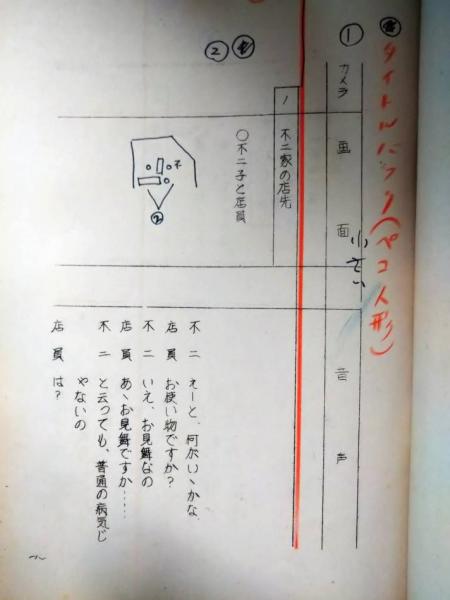 タイトルバック(ペコ人形)
小さい
①
カメラ
画面
音声
②
1
不二家の店先
○不二子と店員
不
②
不二 えーと、何がいゝかな、
店員 お使い物ですか?
不二 いえ、お見舞なの
店員 あゝお見舞ですか……
不二 と云っても、普通の病気じ
ゃないの
店員 は?